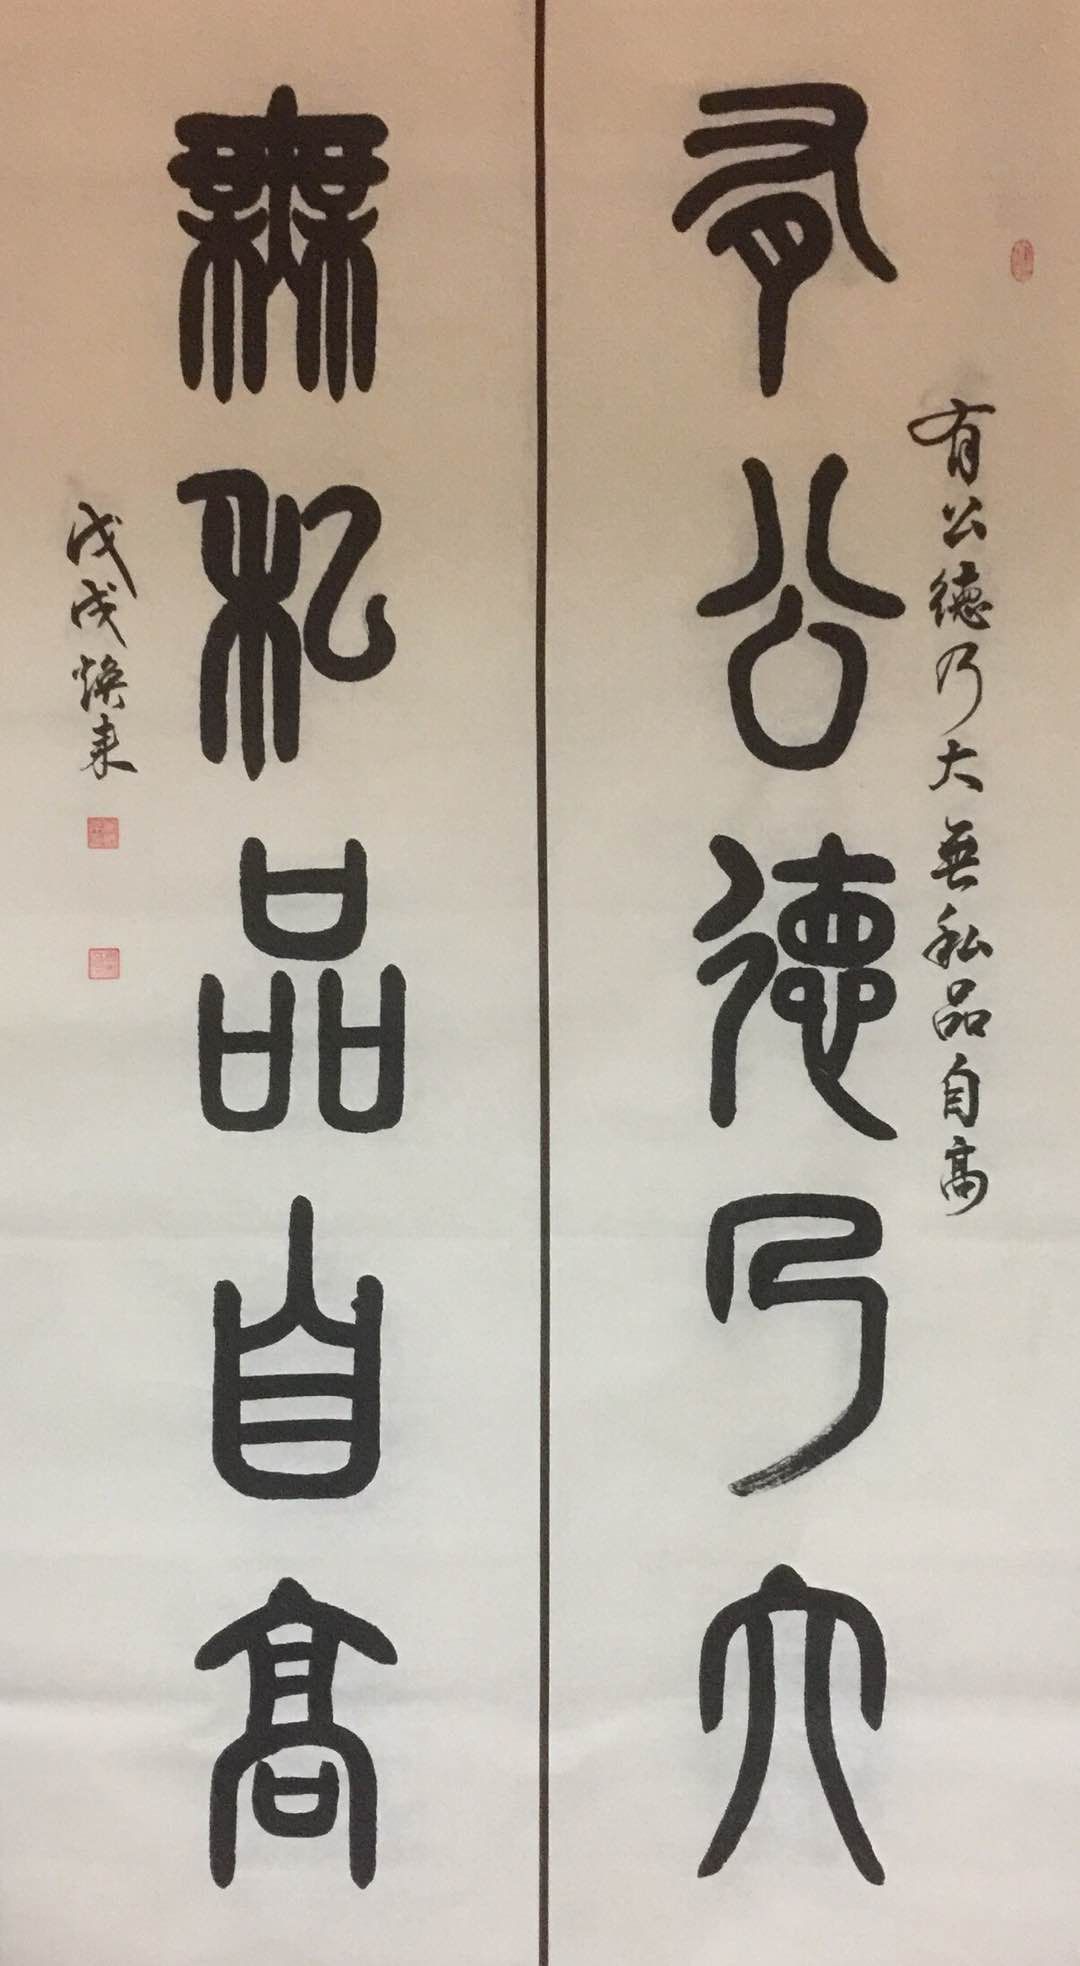 有公德乃大
有公德乃大無私品自高
無私品自高
戊戌焕来